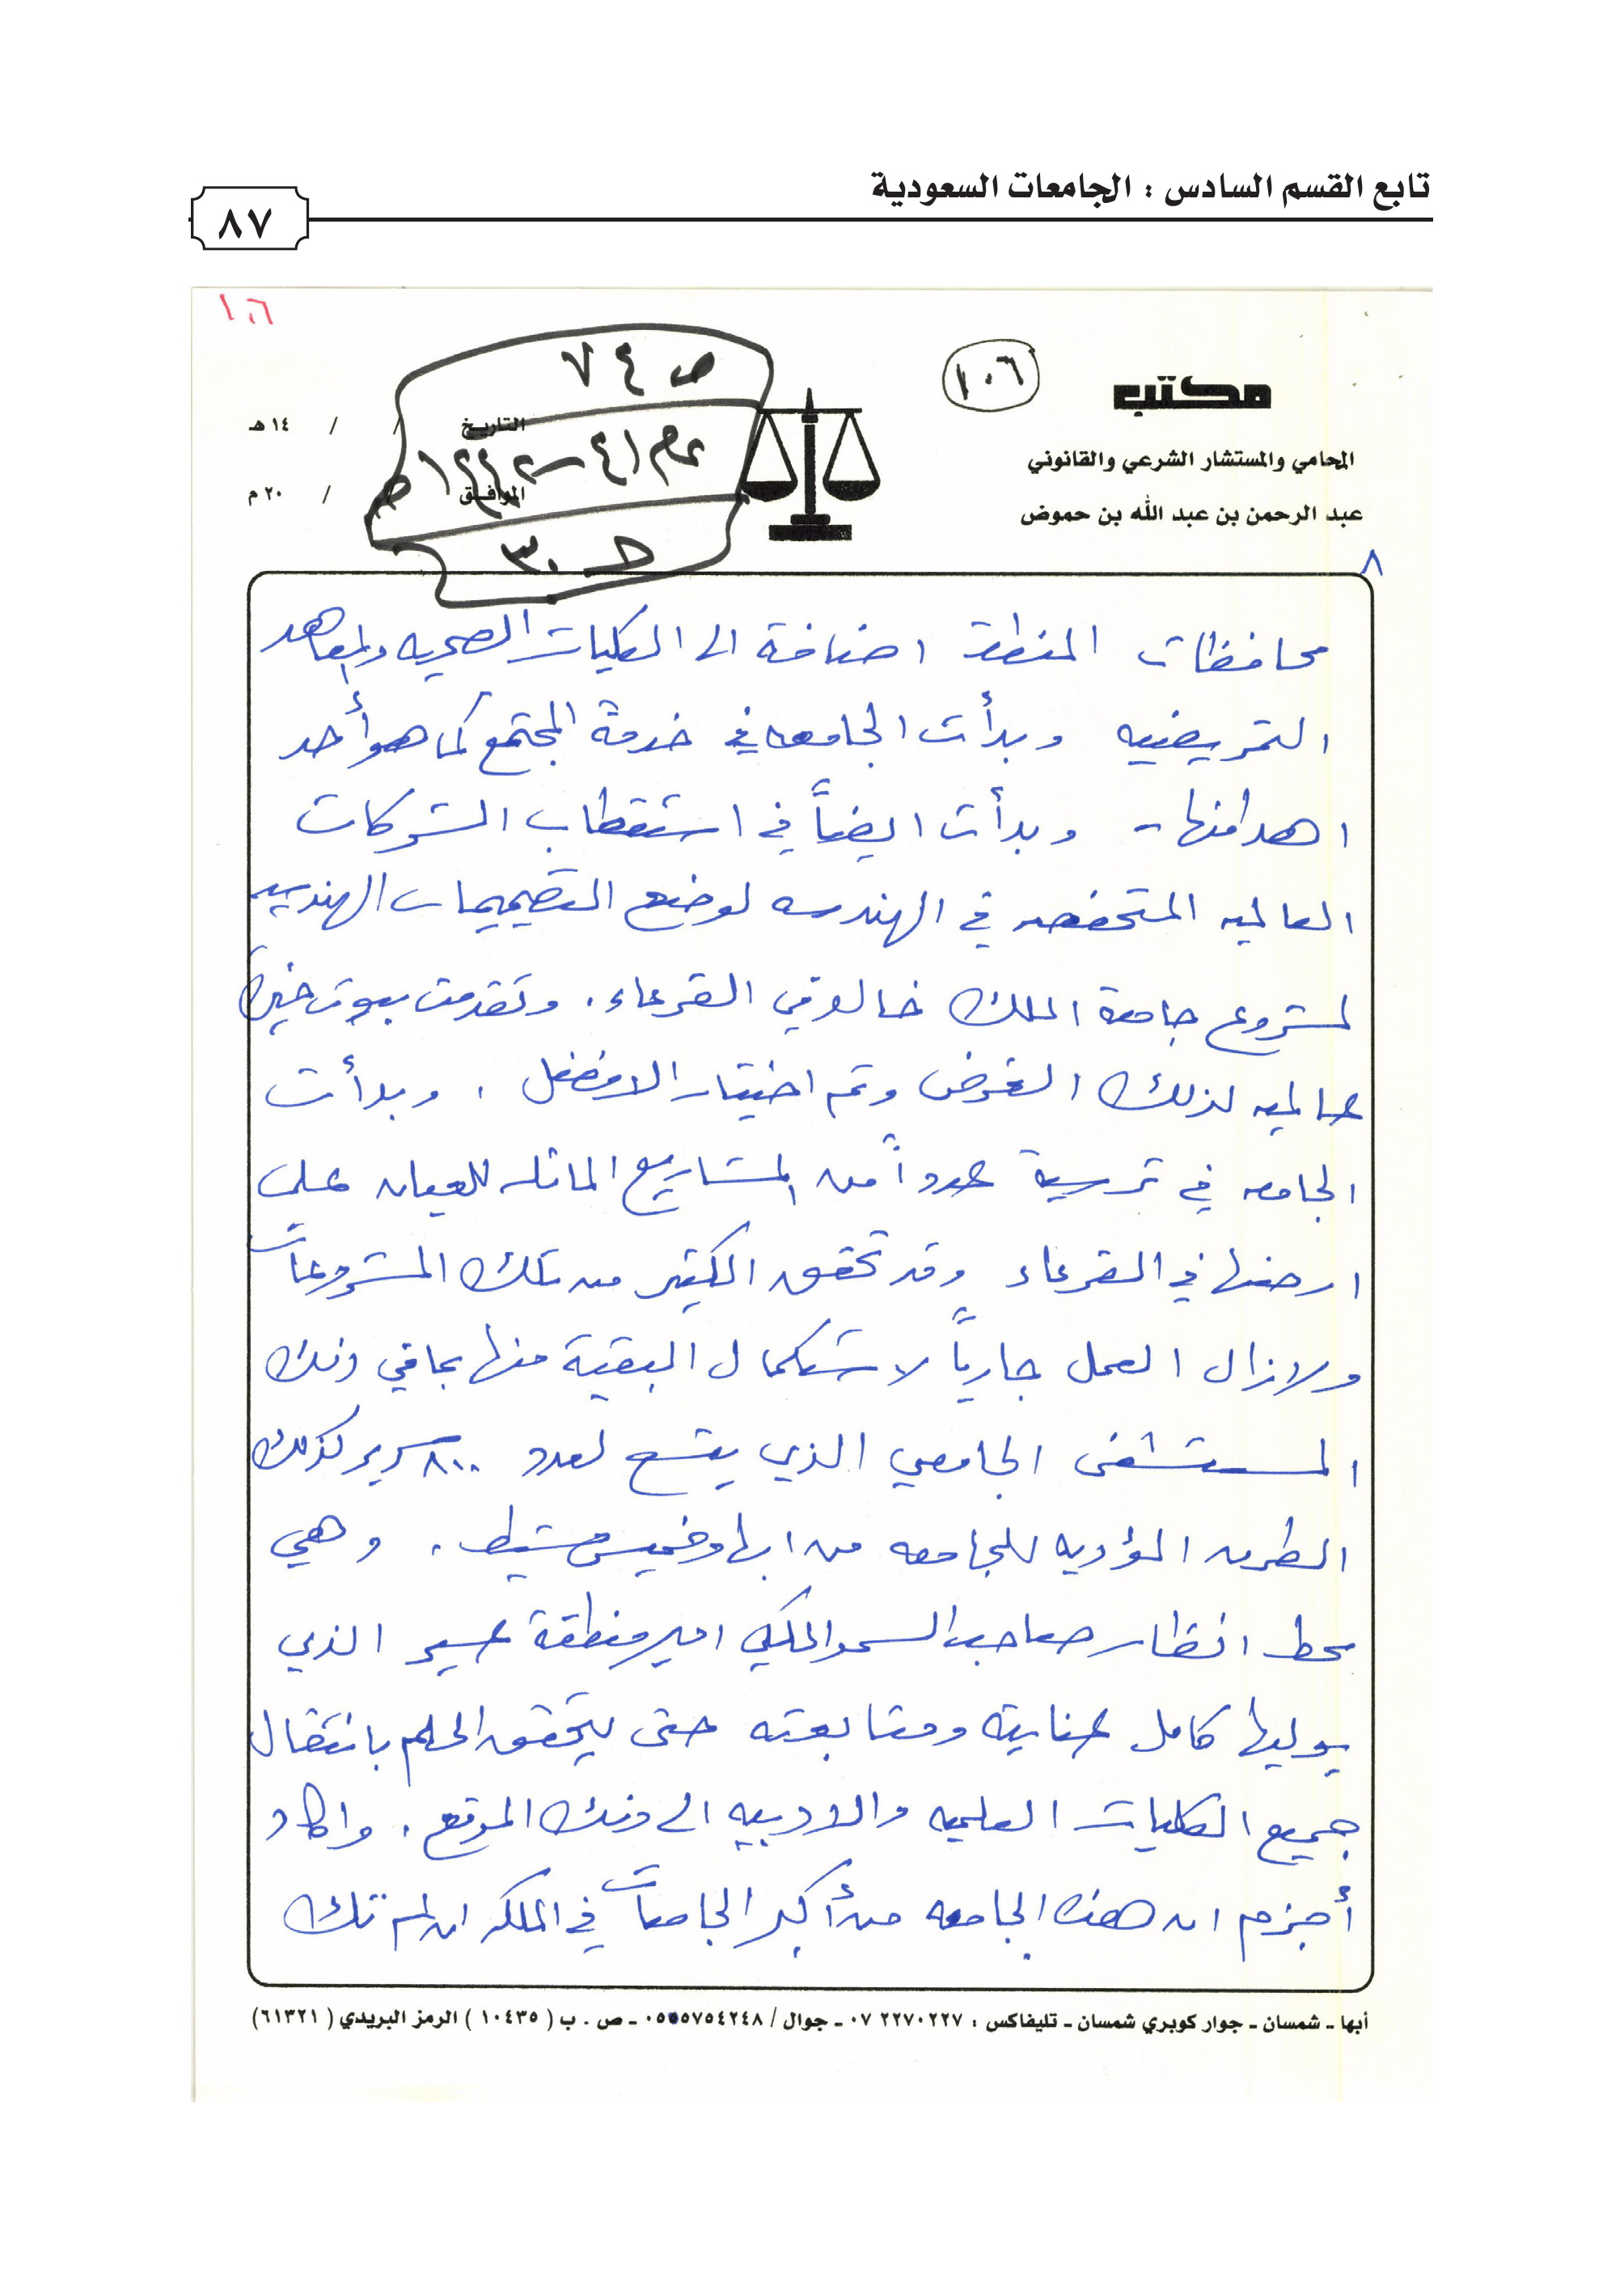 تابع القسم السادس : الجامعات السعودية
٨٧
١٠٦
ص ٧٤
١٠٦
مكتب
التاريخ / / ١٤هـ
عام ٤١ – ١٤٤٢هـ
المحامي والمستشار الشرعي والقانوني
الموافق / / ٢٠م
عبد الرحمن بن عبد الله بن حموض
ط ٣٠
٨
محافظات المنطقة اضافة الى الكليات الصحيه والمعاهد
التمريضيه وبدأت الجامعه في خدمة المجتمع كما هو أحد
اهدافها - وبدأت ايضاً في استقطاب الشركات
العالميه المتخصصه في الهندسه لوضع التصميمات الهندسيه
لمشروع جامعة الملك خالد في القرعاء . وتقدمت بيوت خبرة
عالميه لذلك الغرض وتم اختيار الافضل . وبدأت
الجامعه في ترسية عدداً من المشاريع الماثله للعيان على
ارضها في القرعاء وقد تحقق الكثير من تلك المشروعات
ولازال العمل جارياً لاستكمال البقية منها بما في ذلك
المستشفى الجامعي الذي يتسع لعدد ٨٠٠ سرير كذلك
الطرق المؤديه للجامعه من ابها وخميس مشيط . وهي
محط انظار صاحب السمو الملكي امير منطقة عسير الذي
يوليها كامل عنايته ومتابعته حتى يتحقق الحلم بانتقال
جميع الكليات العلميه والادبيه الى ذلك الموقع . واكاد
أجزم ان هذه الجامعه من أكبر الجامعات في المملكه ان لم تك
أبها ـ شمسان ـ جوار كوبري شمسان ـ تليفاكس : ٢٢٧٠٢٢٧ ٠٧ ـ جوال / ٠٥٥٥٧٥٤٢٤٨ ـ ص . ب ( ١٠٤٣٥ ) الرمز البريدي ( ٦١٣٢١)